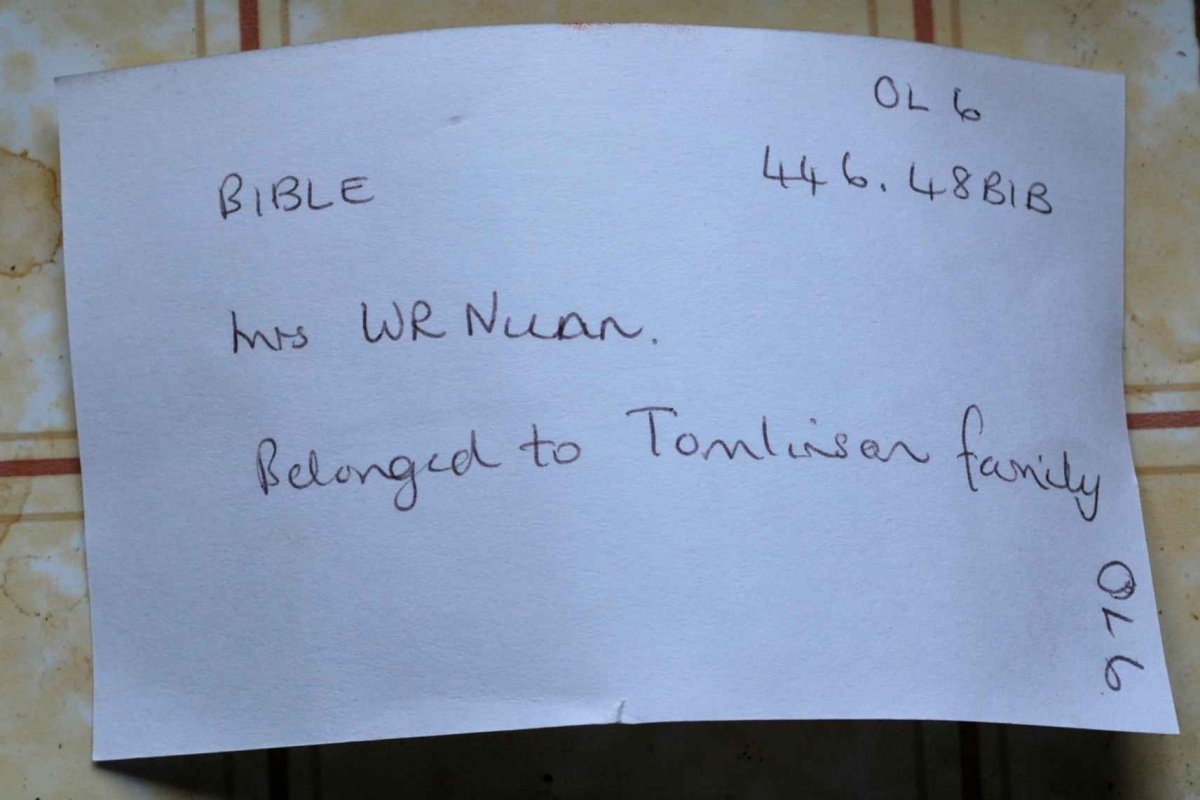 OL 6
446.48BIB
BIBLE
Mrs WR
Belonged to Tomlinson family
OL6